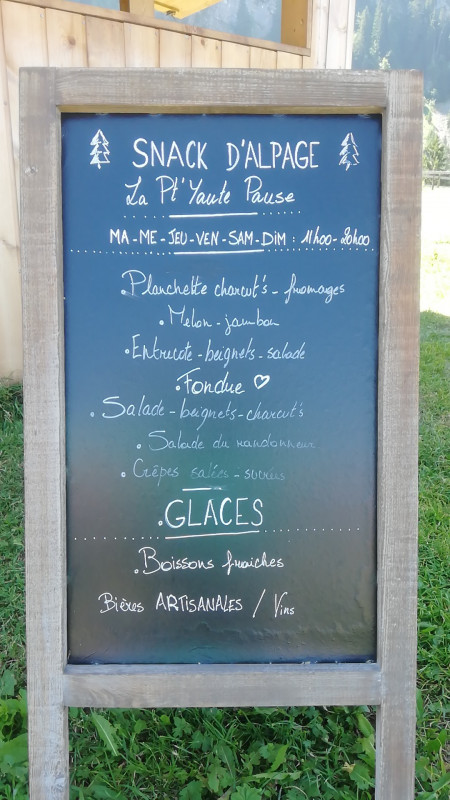 SNACK D'ALPAGE
La Pt'Yaute Pause
MA-ME-JEU-VEN-SAM-DIM : 11h00-20h00
Planchette charcut's - fromages
Melon - jambon
Entrecote - beignets - salade
Fondue ♡
Salade - beignets - charcut's
Salade du randonneur
Crêpes salées - sucrées
GLACES
Boissons fraiches
Bières ARTISANALES / Vins